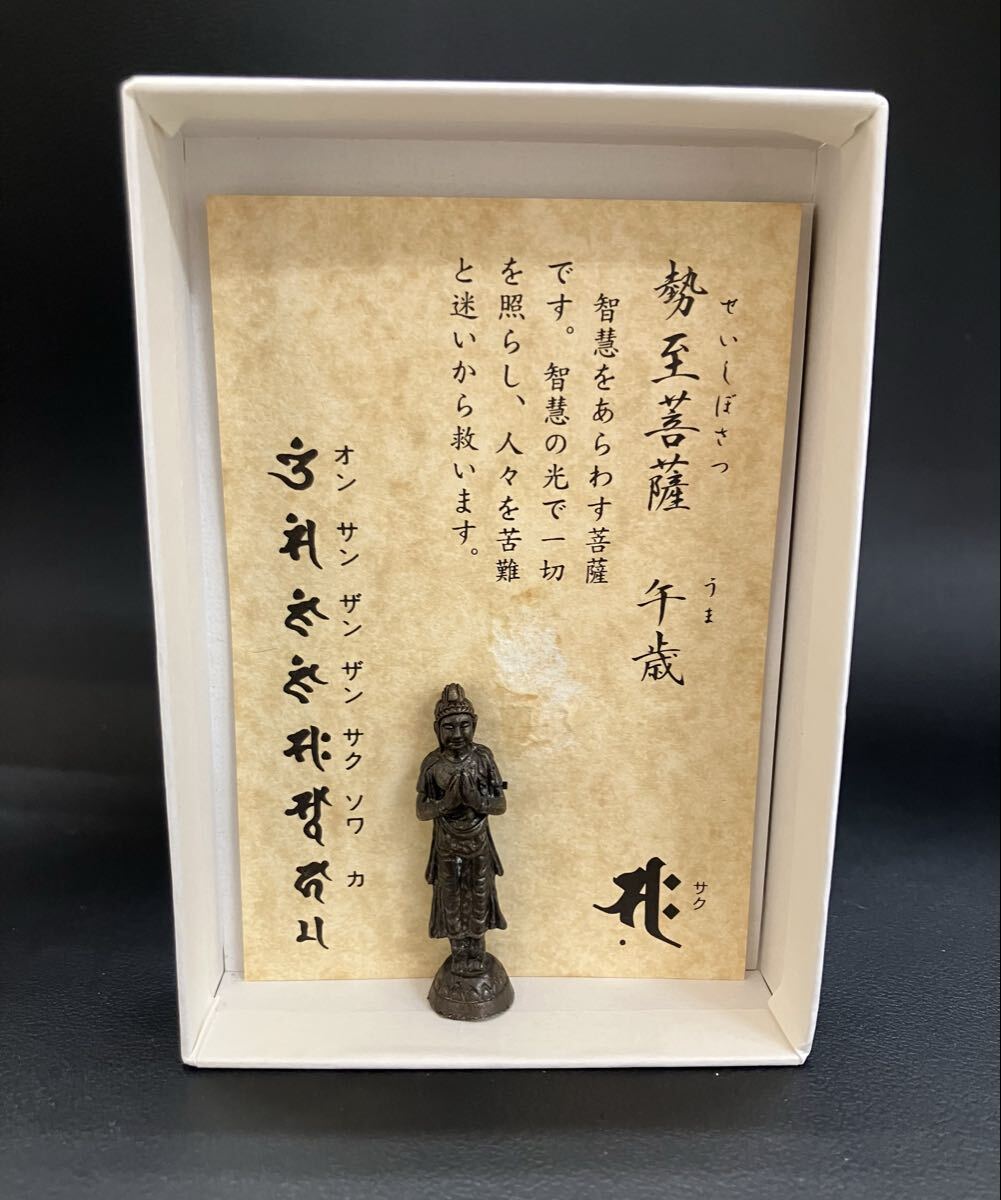 せいしぼさつ うま
勢至菩薩 午歳
智慧をあらわす菩薩
です。智慧の光で一切
を照らし、人々を苦難
と迷いから救います。
オン サン ザン ザン サク ソワ カ
サク